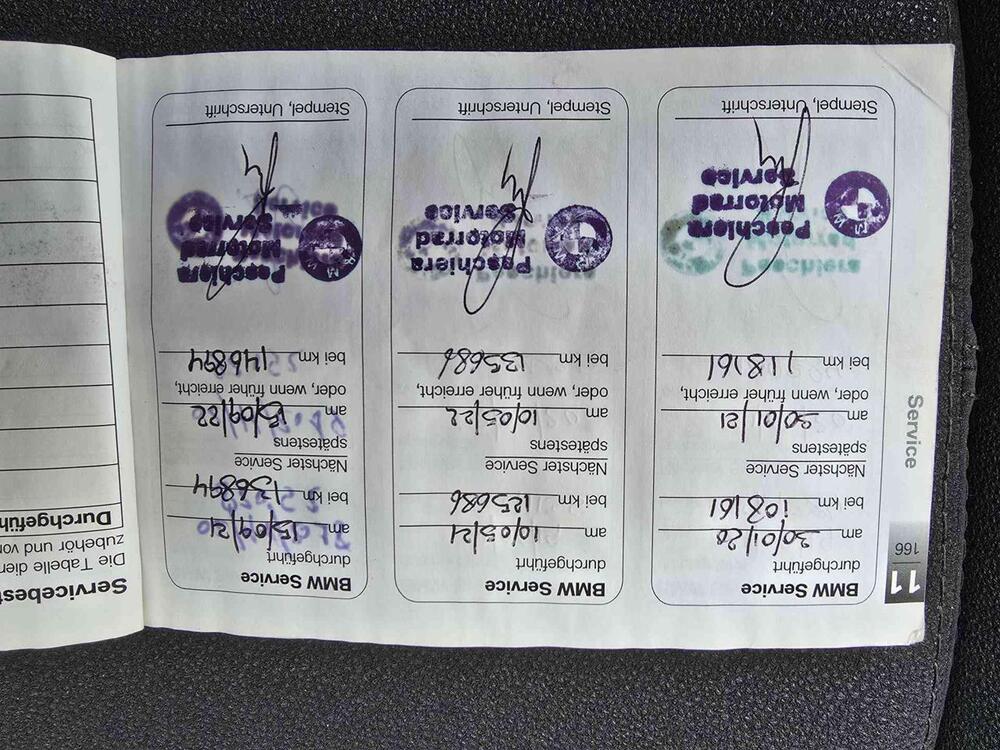 11
166
Service
BMW Service
durchgeführt
am 30/01/20
bei km 108161
Nächster Service
spätestens
am 30/01/21
oder, wenn früher erreicht,
bei km 118161
Peschiera
Motorrad
Service
Stempel, Unterschrift
BMW Service
durchgeführt
am 10/05/21
bei km 125686
Nächster Service
spätestens
am 10/05/22
oder, wenn früher erreicht,
bei km 135686
Peschiera
Motorrad
Service
Stempel, Unterschrift
BMW Service
durchgeführt
am 13/09/21
bei km 136894
Nächster Service
spätestens
am 13/09/22
oder, wenn früher erreicht,
bei km 146894
Peschiera
Motorrad
Service
Stempel, Unterschrift
Servicebest
Die Tabelle dien
zubehör und vor
Durchgeführ